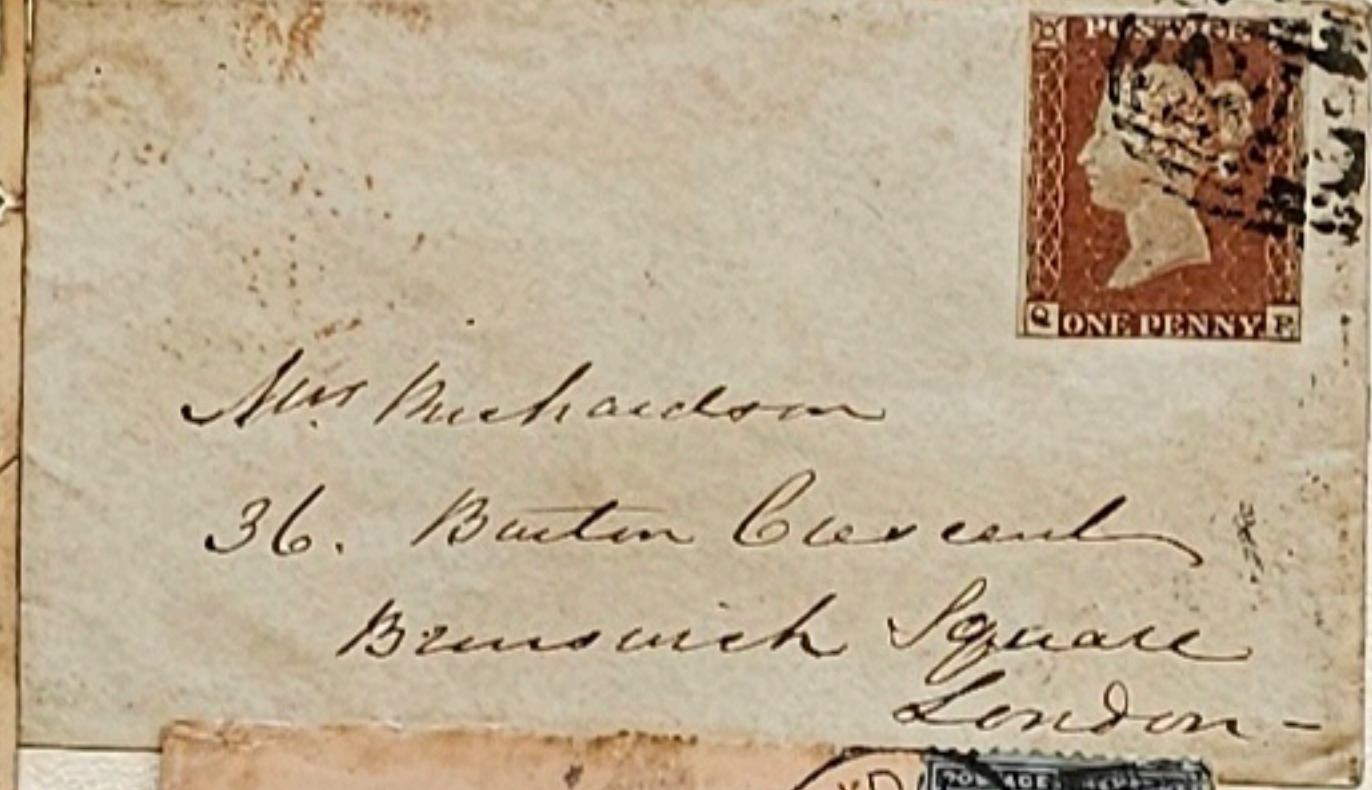 POSTAGE
Q ONE PENNY E
Mrs. Richardson
36. Burton Crescent
Brunswick Square
London -